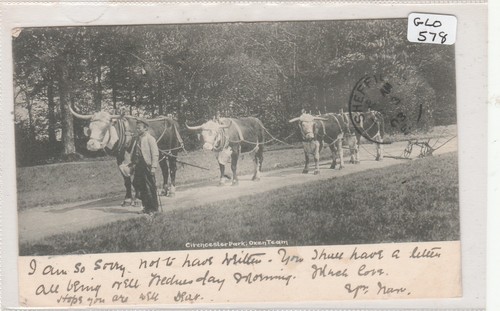 GLO
578
SHEFFIE
Cirencester Park, Oxen Team
I am so sorry not to have written. You shall have a letter
all being well Wednesday morning. Much love.
Hope you are well Dear. Yrs